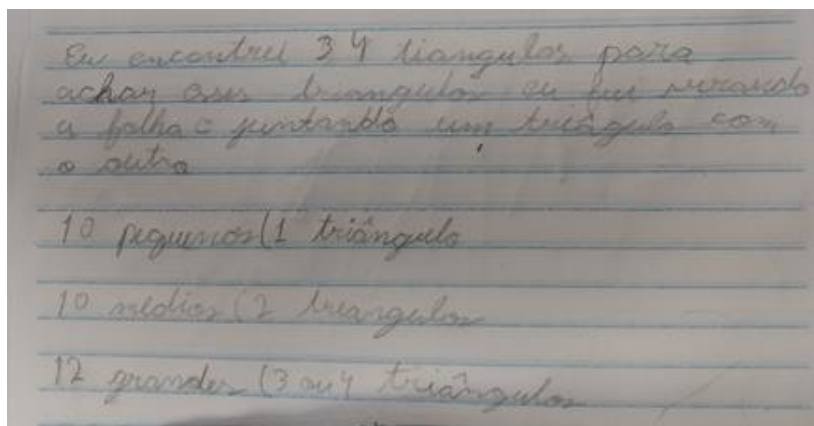 Eu encontrei 34 tiangulos para
achar esses triangulos eu fui virando
a folha e juntando um triângulo com
o outro
10 pequenos (1 triângulo
10 médios (2 treangulos
12 grandes (3 ou 4 triângulos